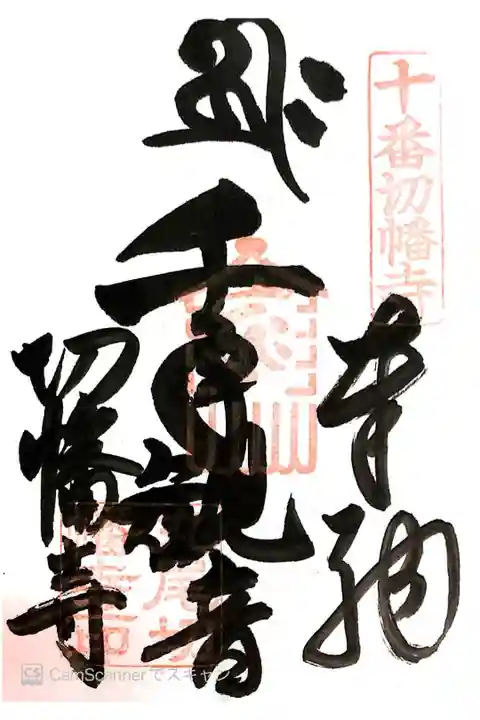 十番切幡寺
奉納
千手観音
切幡寺
CS CamScannerでスキャン